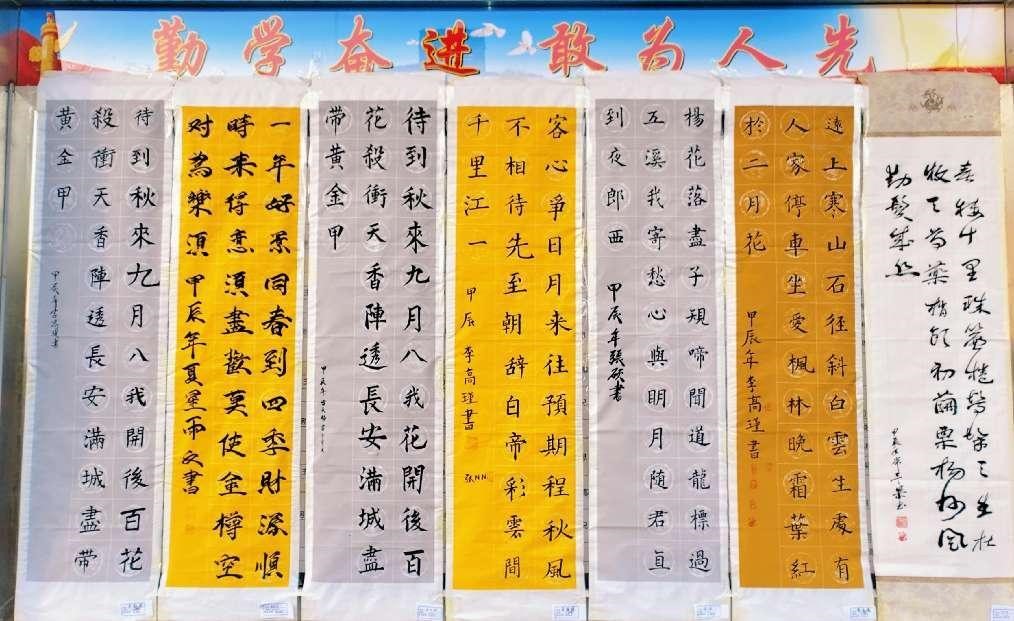 勤学奋进 敢为人先
春風十里珠簾捲髣髴三生杜
牧之红藥梢頭初繭栗楊州風
物鬢成丝
遠上寒山石径斜白雲生處有
人家停車坐愛楓林晚霜葉紅
於二月花
甲辰年李高瑾書
楊花落盡子規啼聞道龍標過
五溪我寄愁心與明月随君直
到夜郎西
甲辰年張欣書
客心爭日月来往預期程秋風
不相待先至朝辞白帝彩雲間
千里江一
甲辰 李高瑾書
待到秋來九月八我花開後百
花殺衝天香陣透長安满城盡
带黄金甲
一年好景同春到四季財源順
時来得意須盡歡莫使金樽空
对為樂須 甲辰年夏星雨文書
待到秋來九月八我開後百花
殺衝天香陣透長安滿城盡帶
黄金甲